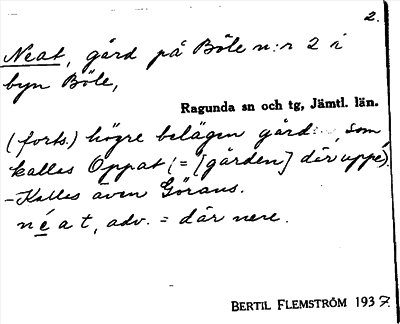 2.
Neat, gård på Böle n:r 2 i
byn Böle,
Ragunda sn och tg, Jämtl. län.
(forts.) högre belägen gård som
kallas Oppat (= [gården] där uppe).
- Kallas även Görans.
néat, adv. = där nere.
BERTIL FLEMSTRÖM 1937.